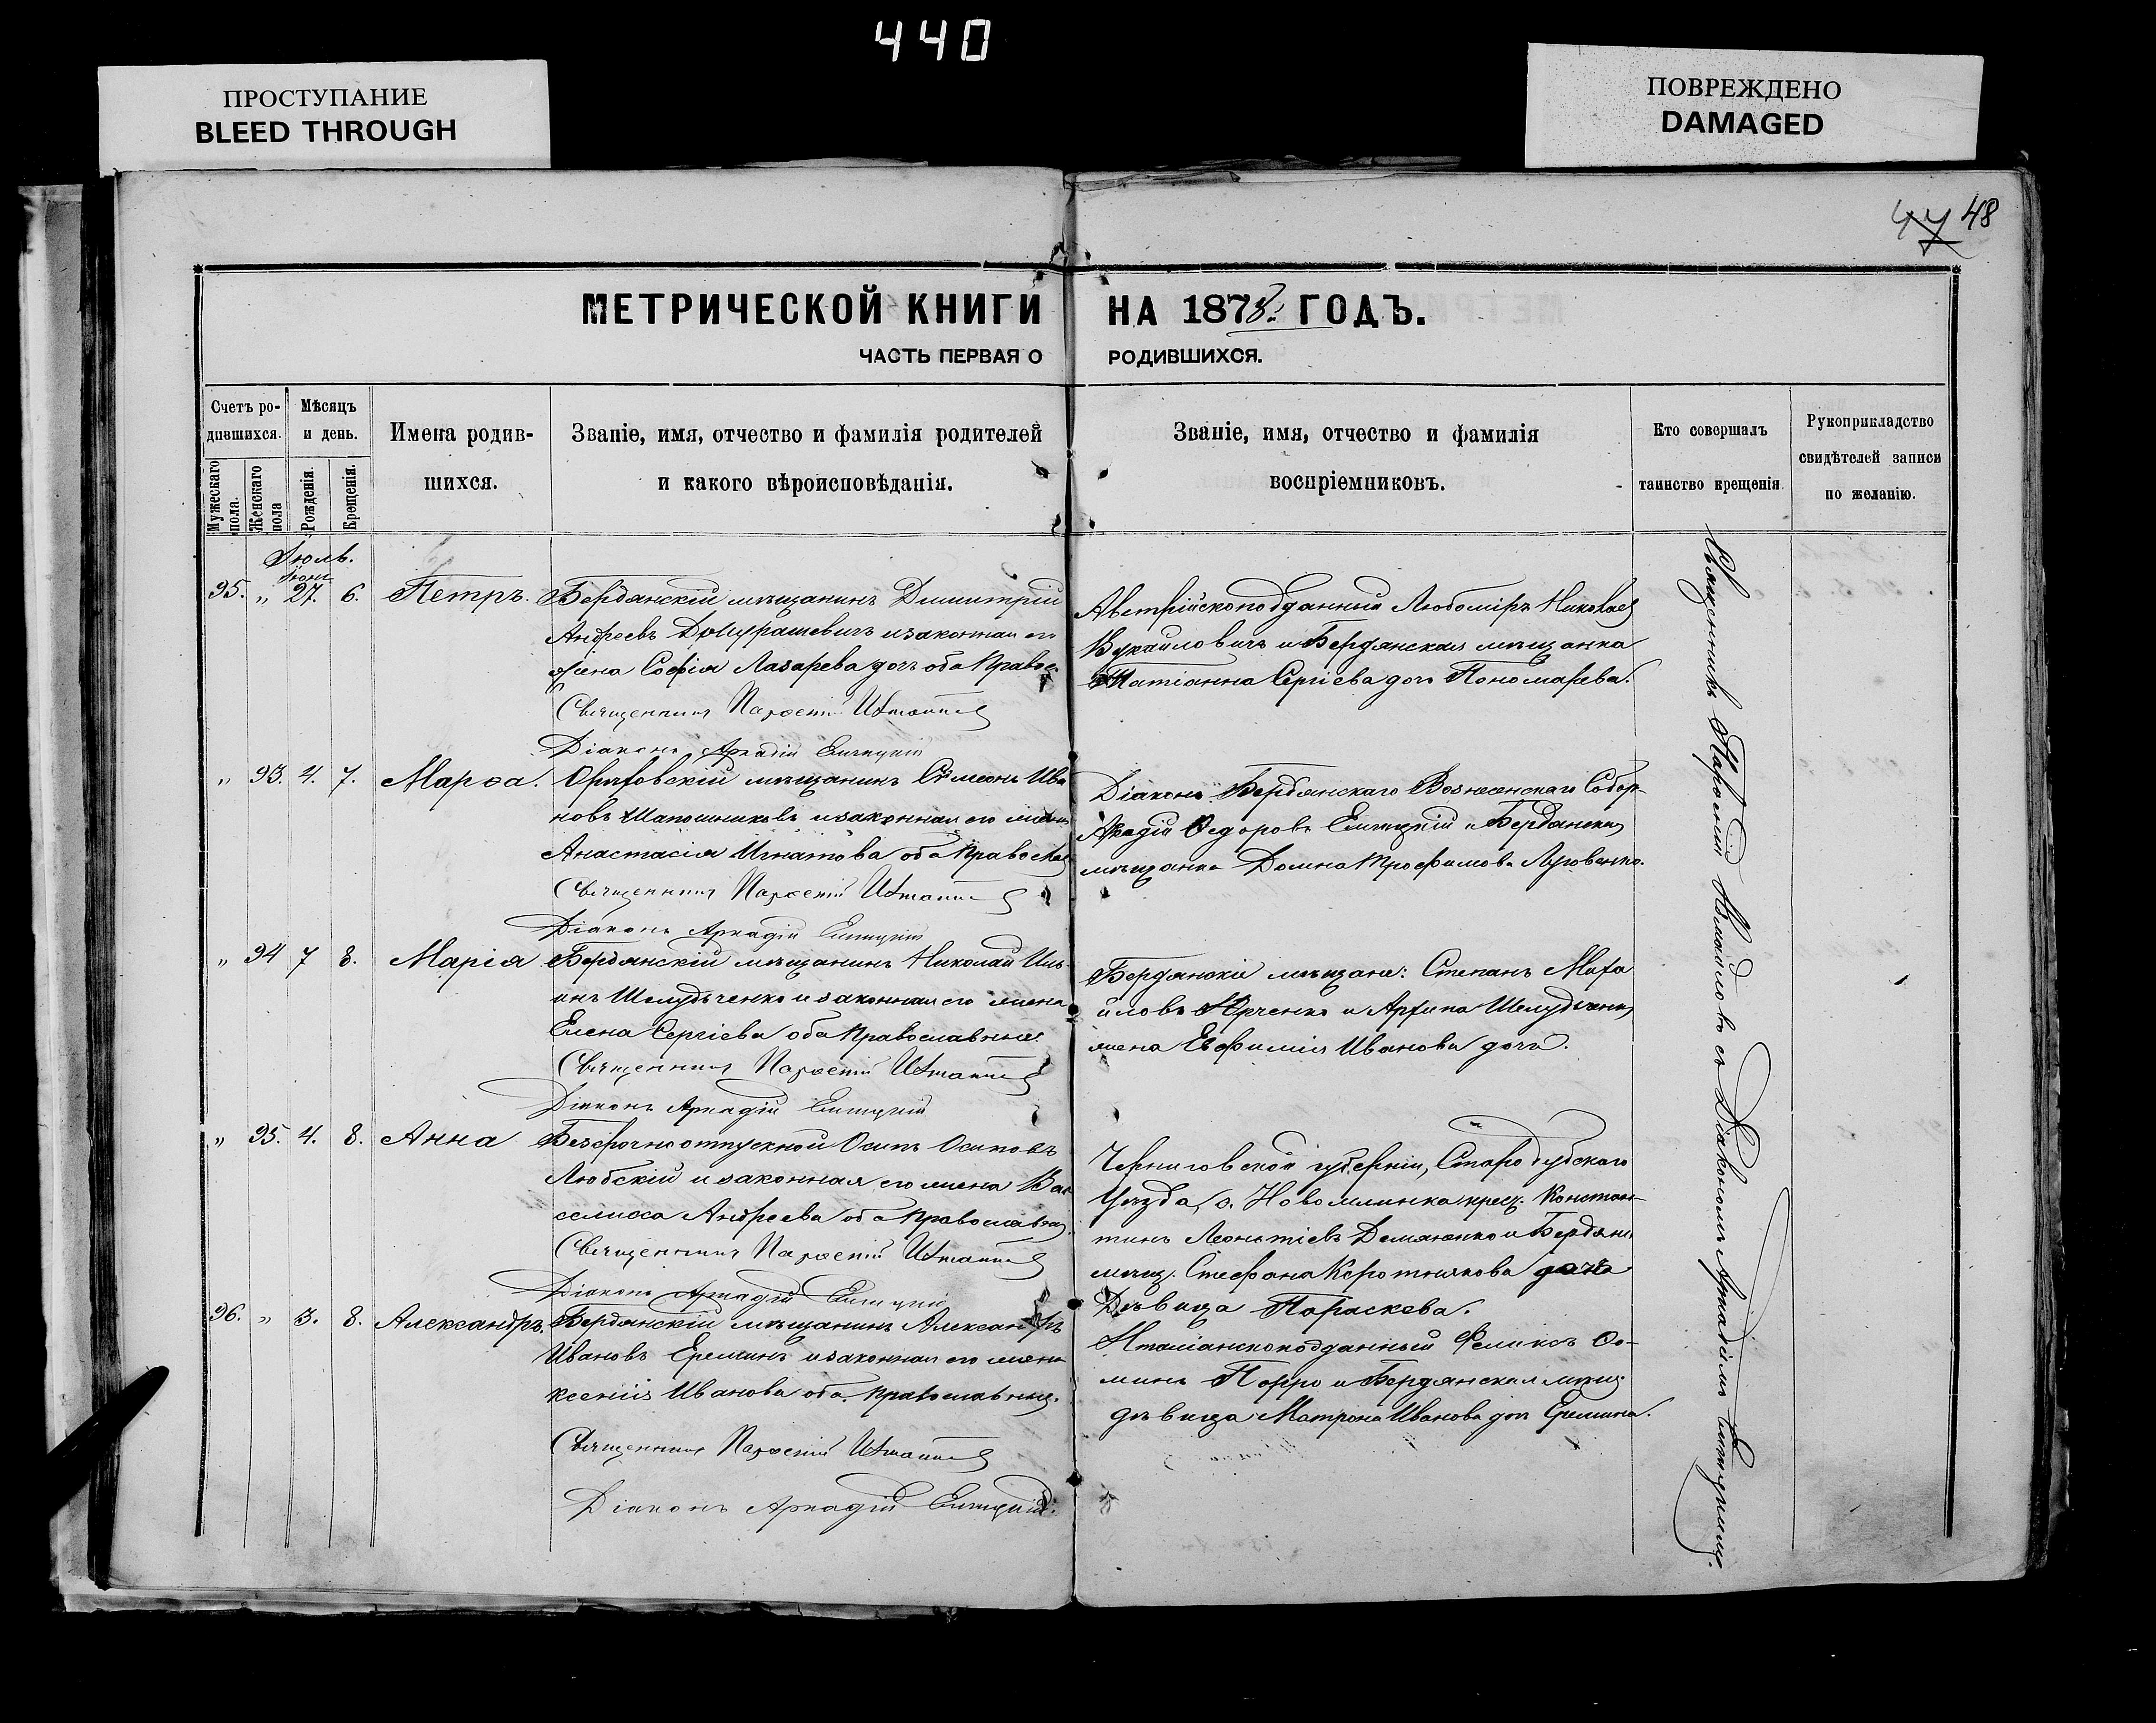 440
ПРОСТУПАНИЕ
BLEED THROUGH
ПОВРЕЖДЕНО
DAMAGED
47 48
МЕТРИЧЕСКОЙ КНИГИ НА 1878. ГОДЪ.
ЧАСТЬ ПЕРВАЯ О РОДИВШИХСЯ.
Счетъ ро-
дившихся.
Мужескаго пола.
Женскаго пола
Мѣсяцъ
и день.
Рожденія.
Крещенія.
Имена родив-
шихся.
Званіе, имя, отчество и фамилія родителей
и какого вѣроисповѣданія.
Званіе, имя, отчество и фамилія
воспріемниковъ.
Кто совершалъ
таинство крещенія.
Рукоприкладство
свидѣтелей записи
по желанію.
Іюль.
Іюня
95. " 27. 6. Петръ.
Бердянскій мѣщанинъ Димитрій
Андреевъ и законная его
жена Софія Лазарева доч. оба Правос.
Священникъ Парѳеній
Діаконъ Аркадій
Австрійскоподданный Любоміръ Николаев
и Бердянская мѣщанка
Татіанна Сергіева доч. Пономарева.
" 93. 4. 7. Марѳа.
Орѣховскій мѣщанинъ Симеонъ Ива
новъ Шапошниковъ и законная его жена
Анастасія Игнатова оба Православ
Священникъ Парѳеній
Діаконъ Аркадій
Діаконъ Бердянскаго Вознесенскаго Собор-
Аркадій Ѳедоровъ и Бердянская
мѣщанка Домна Трофимова
" 94 7 8. Марія
Бердянскій мѣщанинъ Николай Иль-
инъ Шелудченко и законная его жена
Елена Сергіева оба Православные.
Священникъ Парѳеній
Діаконъ Аркадій
Бердянскіе мѣщане: Степанъ Миха
йловъ и Шелудченка
жена Евфимія Иванова доч.
" 95. 4. 8. Анна
Безсрочноотпускной Осипъ Осиповъ
Любскій и законная его жена Вас
селиса Андреева оба Православные
Священникъ Парѳеній
Діаконъ Аркадій
Черниговской губерніи, Стародубскаго
Уѣзда, с. Новомлинка крест. Констан-
тинъ Леонтіевъ Демяненко и Бердянс.
мѣщ. Стефана Коротнякова дочь
Дѣвица Параскева.
96. " 3. 8. Александръ.
Бердянскій мѣщанинъ Александръ
Ивановъ Ереминъ и законная его жена
Ксенія Иванова оба Православные.
Священникъ Парѳеній
Діаконъ Аркадій
Италіанскоподданный Феликсъ Ѳо-
минъ Порро и Бердянская мѣщ.
дѣвица Матрона Иванова доч. Еремина.
Священникъ Парѳеній Измаиловъ съ Діакономъ Аркадіемъ